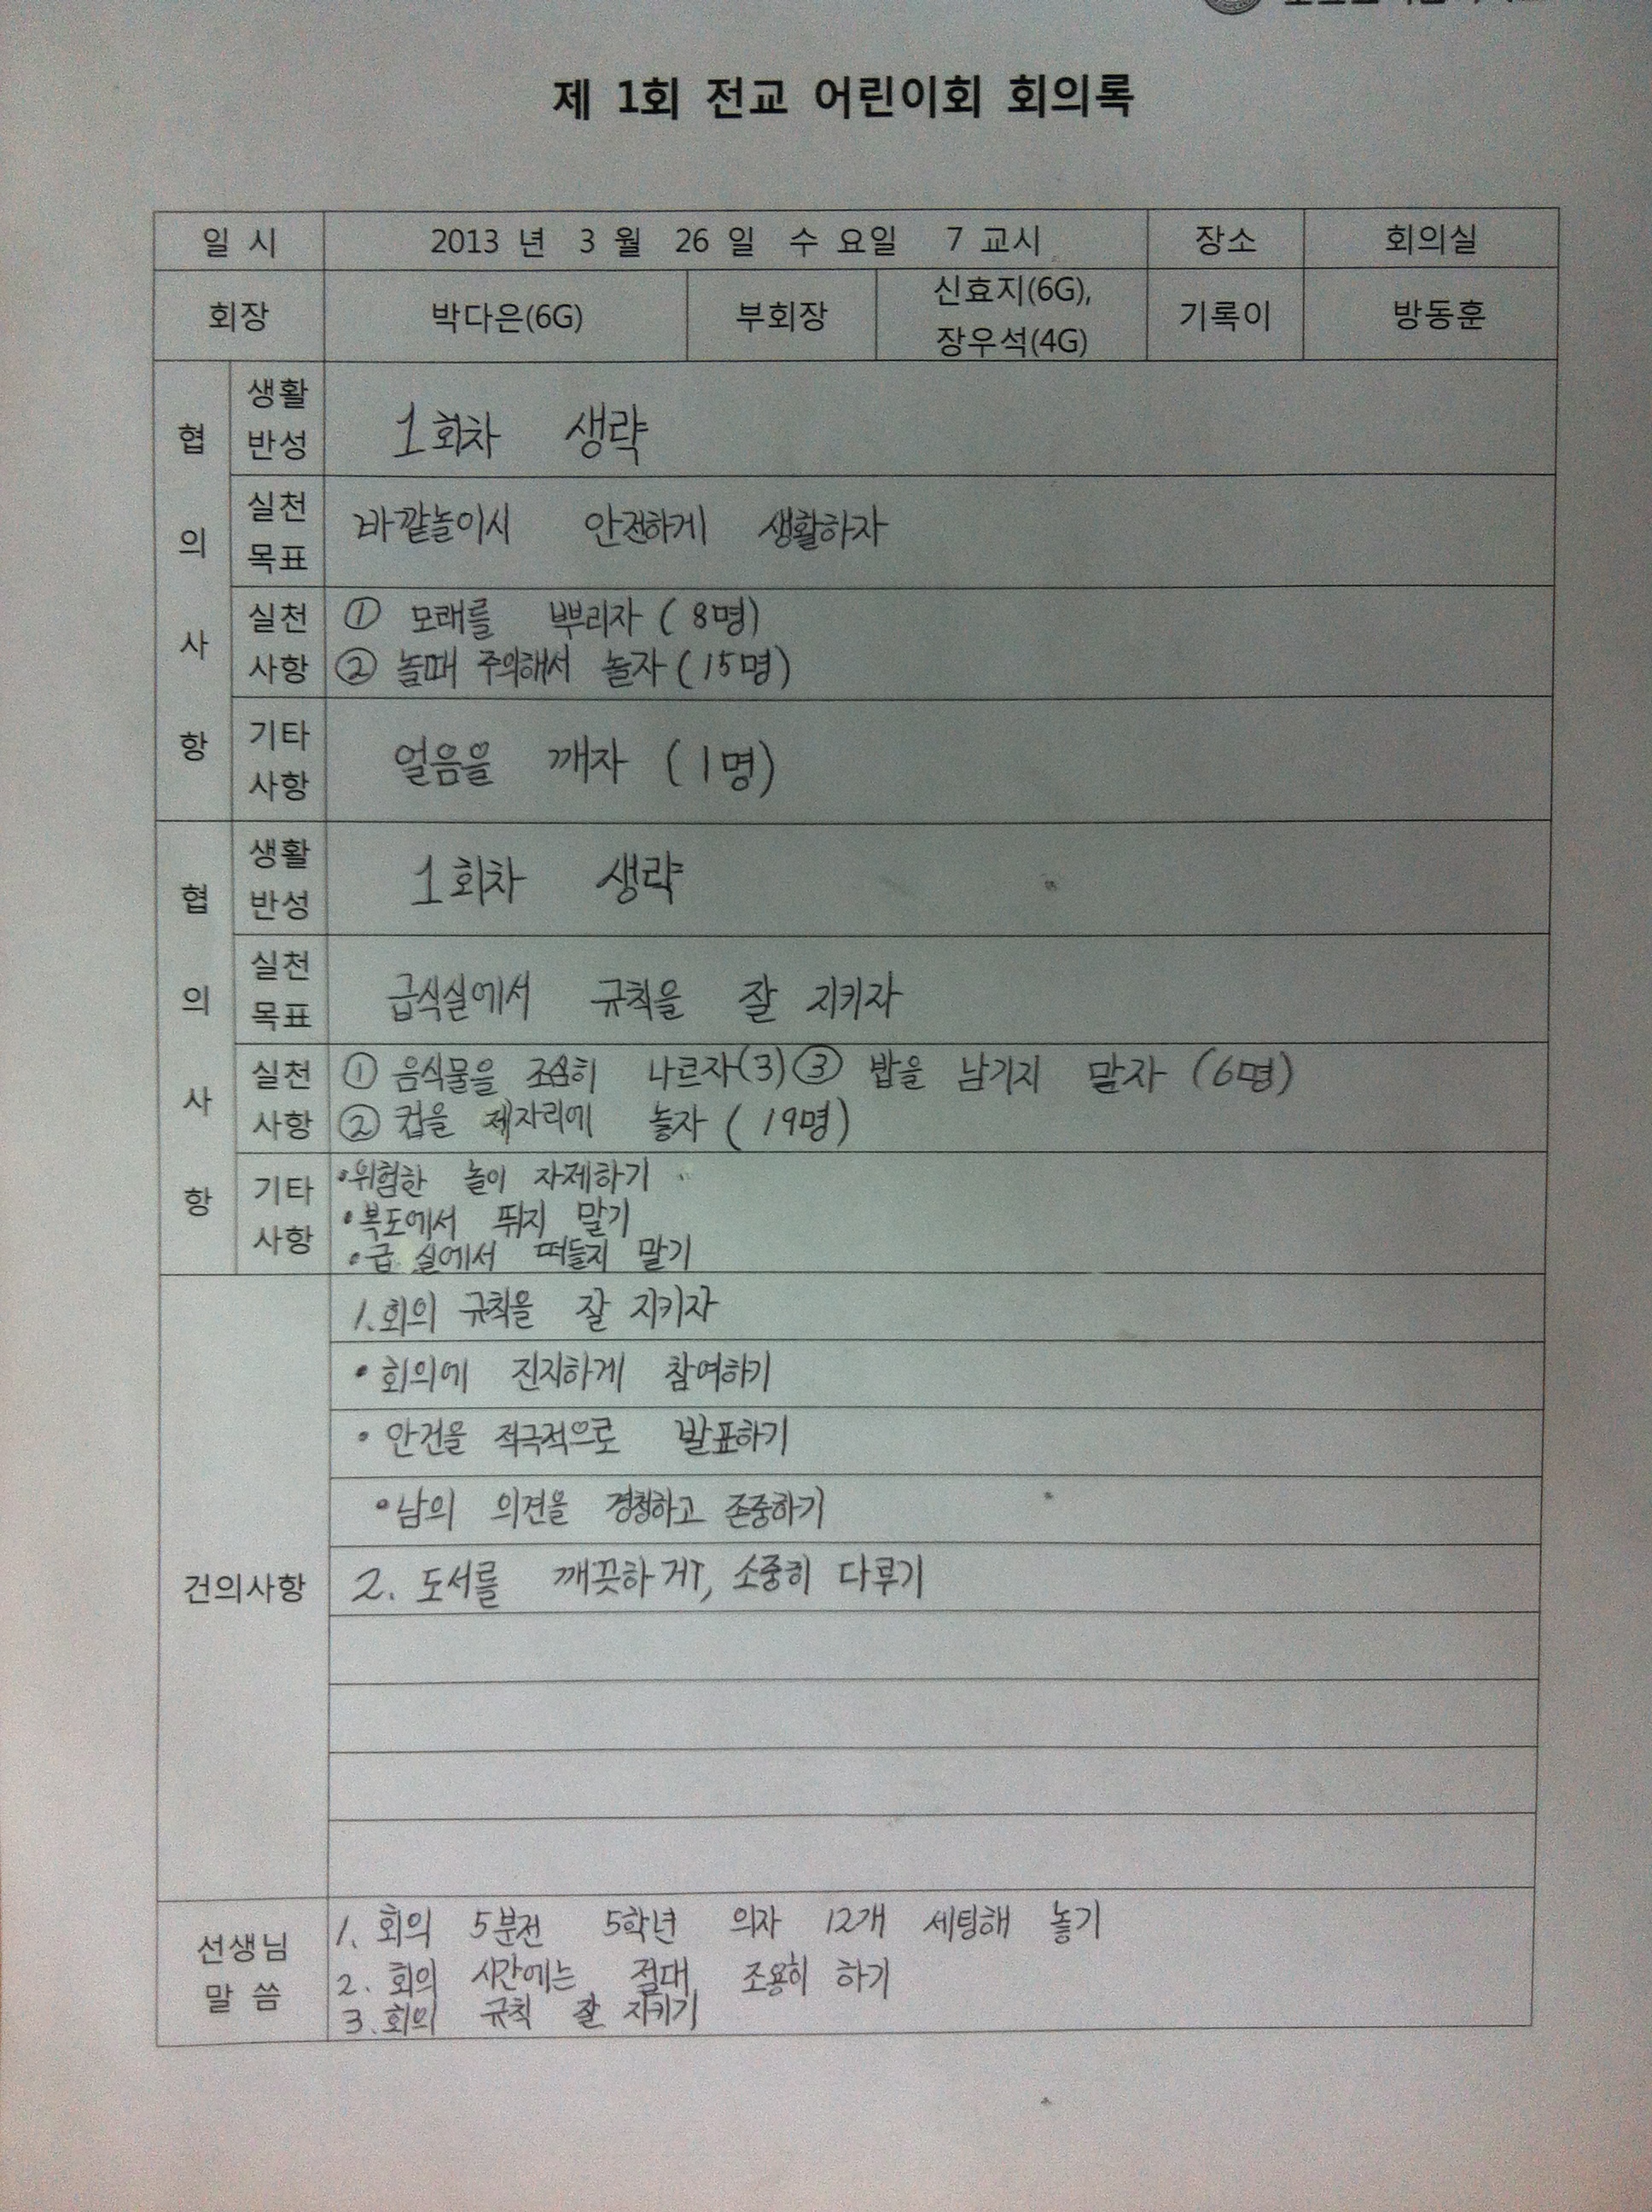 제 1회 전교 어린이회 회의록
일 시 2013 년 3 월 26 일 수 요일 7 교시 장소 회의실
회장 박다은(6G) 부회장 신효지(6G), 장우석(4G) 기록이 방동훈
협의사항
생활반성 1회차 생략
실천목표 바깥놀이시 안전하게 생활하자
실천사항 ① 모래를 뿌리자 (8명)
② 놀때 주의해서 놀자 (15명)
기타사항 얼음을 깨자 (1명)
협의사항
생활반성 1회차 생략
실천목표 급식실에서 규칙을 잘 지키자
실천사항 ① 음식물을 조심히 나르자(3) ③ 밥을 남기지 말자 (6명)
② 컵을 제자리에 놓자 (19명)
기타사항 •위험한 놀이 자제하기
•복도에서 뛰지 말기
•급 실에서 떠들지 말기
건의사항
1. 회의 규칙을 잘 지키자
•회의에 진지하게 참여하기
•안건을 적극적으로 발표하기
•남의 의견을 경청하고 존중하기
2. 도서를 깨끗하게, 소중히 다루기
선생님 말 씀
1. 회의 5분전 5학년 의자 12개 세팅해 놓기
2. 회의 시간에는 절대 조용히 하기
3. 회의 규칙 잘 지키기